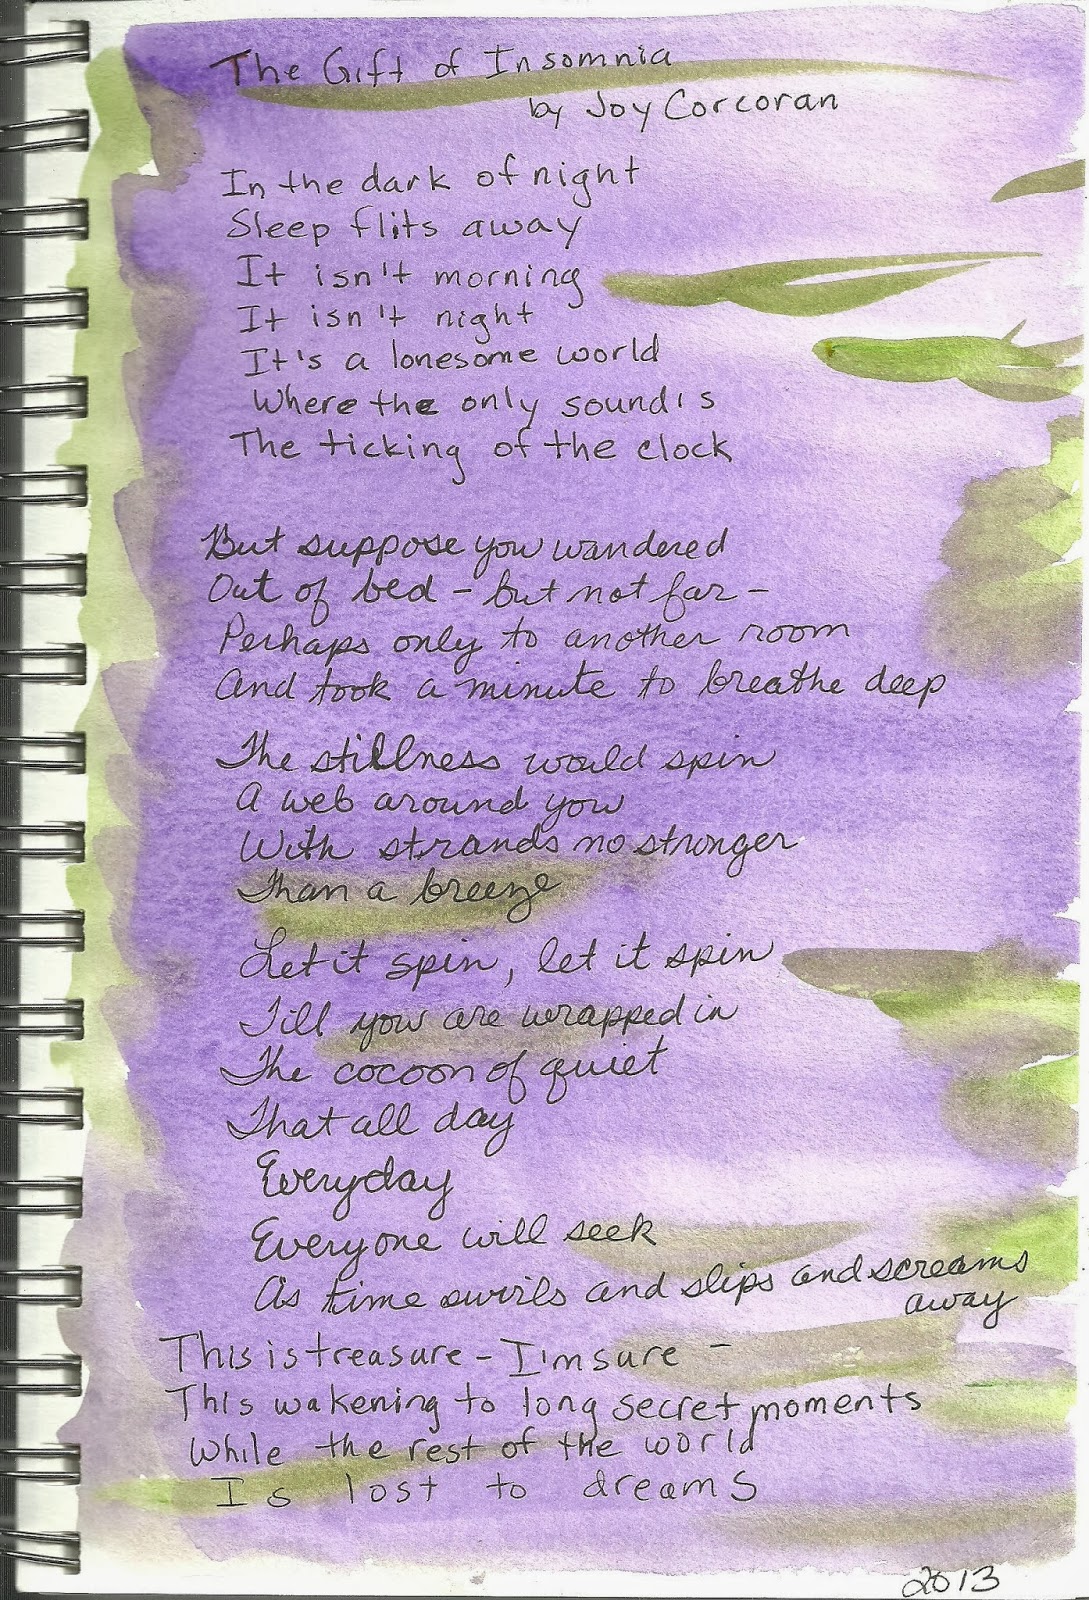 The Gift of Insomnia
by Joy Corcoran
In the dark of night
Sleep flits away
It isn't morning
It isn't night
It's a lonesome world
Where the only sound is
The ticking of the clock
But suppose you wandered
Out of bed - but not far -
Perhaps only to another room
And took a minute to breathe deep
The stillness would spin
A web around you
With strands no stronger
Than a breeze
Let it spin, let it spin
Till you are wrapped in
The cocoon of quiet
That all day
Everyday
Everyone will seek
As time swirls and slips and screams
away
This is treasure - I'm sure -
This wakening to long secret moments
While the rest of the world
Is lost to dreams
2013